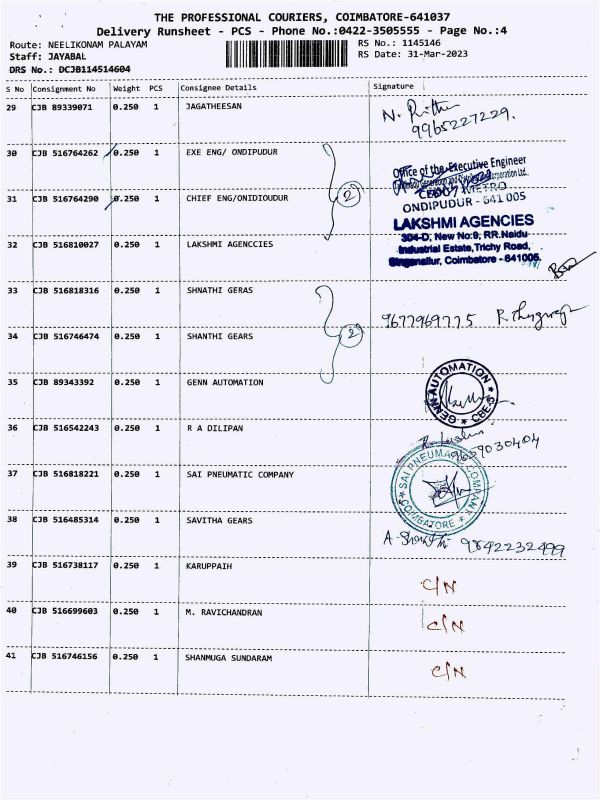 THE PROFESSIONAL COURIERS, COIMBATORE-641037
Delivery Runsheet - PCS - Phone No.:0422-3505555 - Page No.:4
Route: NEELIKONAM PALAYAM
RS No.: 1145146
Staff: JAYABAL
RS Date: 31-Mar-2023
DRS No.: DCJB114514604
S No Consignment No Weight PCS Consignee Details Signature
29 CJB 89339071 0.250 1 JAGATHEESAN
9965227229.
30 CJB 516764262 0.250 1 EXE ENG/ ONDIPUDUR
2
Office of the Executive Engineer
31 CJB 516764290 0.250 1 CHIEF ENG/ONIDIOUDUR
ONDIPUDUR - 641 005
LAKSHMI AGENCIES
32 CJB 516810027 0.250 1 LAKSHMI AGENCCIES
304-D, New No:9, RR.Naidu
Industrial Estate,Trichy Road,
Singanallur, Coimbatore - 641005.
33 CJB 516818316 0.250 1 SHNATHI GERAS
9677969775
34 CJB 516746474 0.250 1 SHANTHI GEARS
2
35 CJB 89343392 0.250 1 GENN AUTOMATION
GENN AUTOMATION
CBE-5
36 CJB 516542243 0.250 1 R A DILIPAN
9659030404
37 CJB 516818221 0.250 1 SAI PNEUMATIC COMPANY
SAI PNEUMATIC COMPANY
COIMBATORE
38 CJB 516485314 0.250 1 SAVITHA GEARS
9842232499
39 CJB 516738117 0.250 1 KARUPPAIH
C/N
40 CJB 516699603 0.250 1 M. RAVICHANDRAN
C/N
41 CJB 516746156 0.250 1 SHANMUGA SUNDARAM
C/N